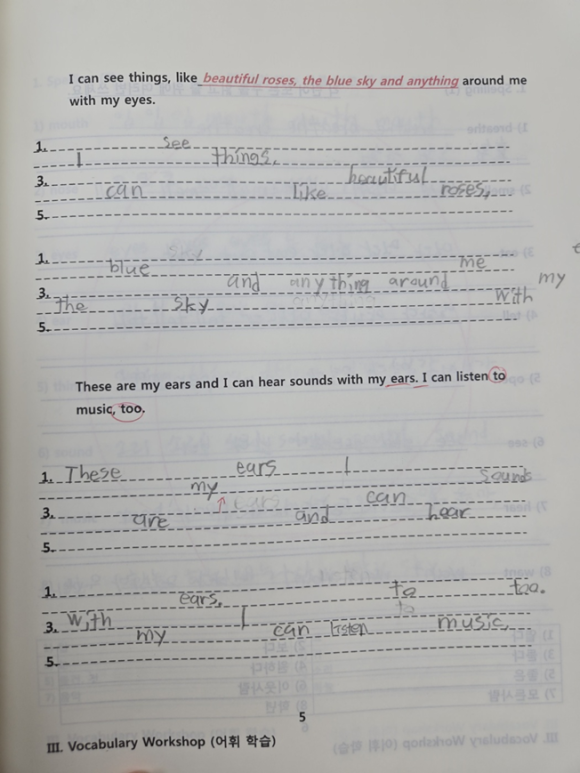 I can see things, like beautiful roses, the blue sky and anything around me
with my eyes.
1. see
I things,
3. beautiful
can like roses,
5.
1. blue me
and anything around my
3. The sky with
5.
These are my ears and I can hear sounds with my ears. I can listen to
music, too.
1. These ears I sounds
my can
3. are and hear
5.
1. ears, to too.
3. With I to music,
my can listen
5.
5
III. Vocabulary Workshop (어휘 학습)